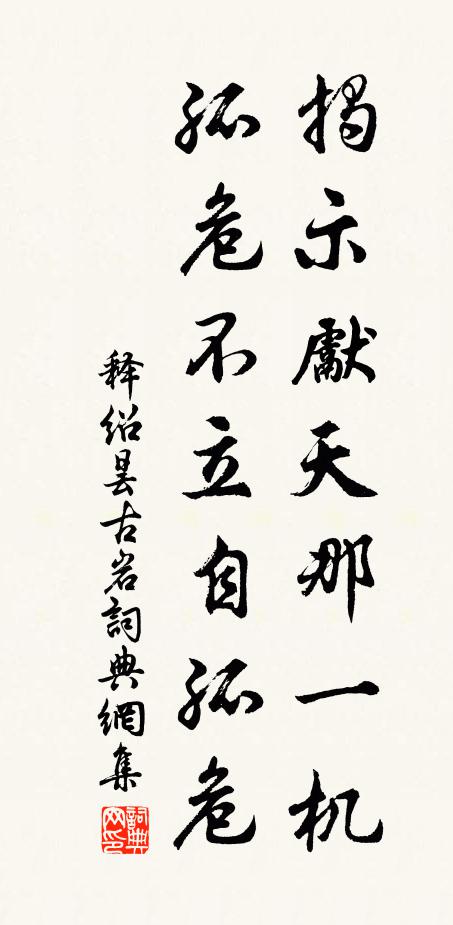 揭示獻天那一机
孤危不立自孤危
释绍昙古岩詞典網集
詞典网印